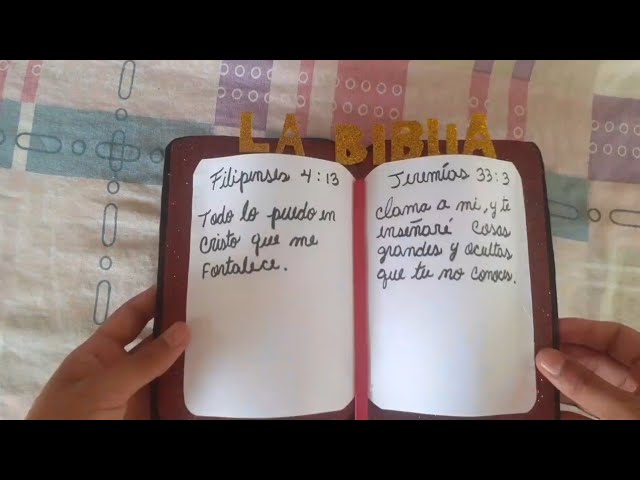 LA BIBLIA
Filipenses 4:13
Todo lo puedo en
Cristo que me
Fortalece.
Jeremías 33:3
Clama a mi, y te
enseñaré cosas
grandes y ocultas
que tu no conoces.